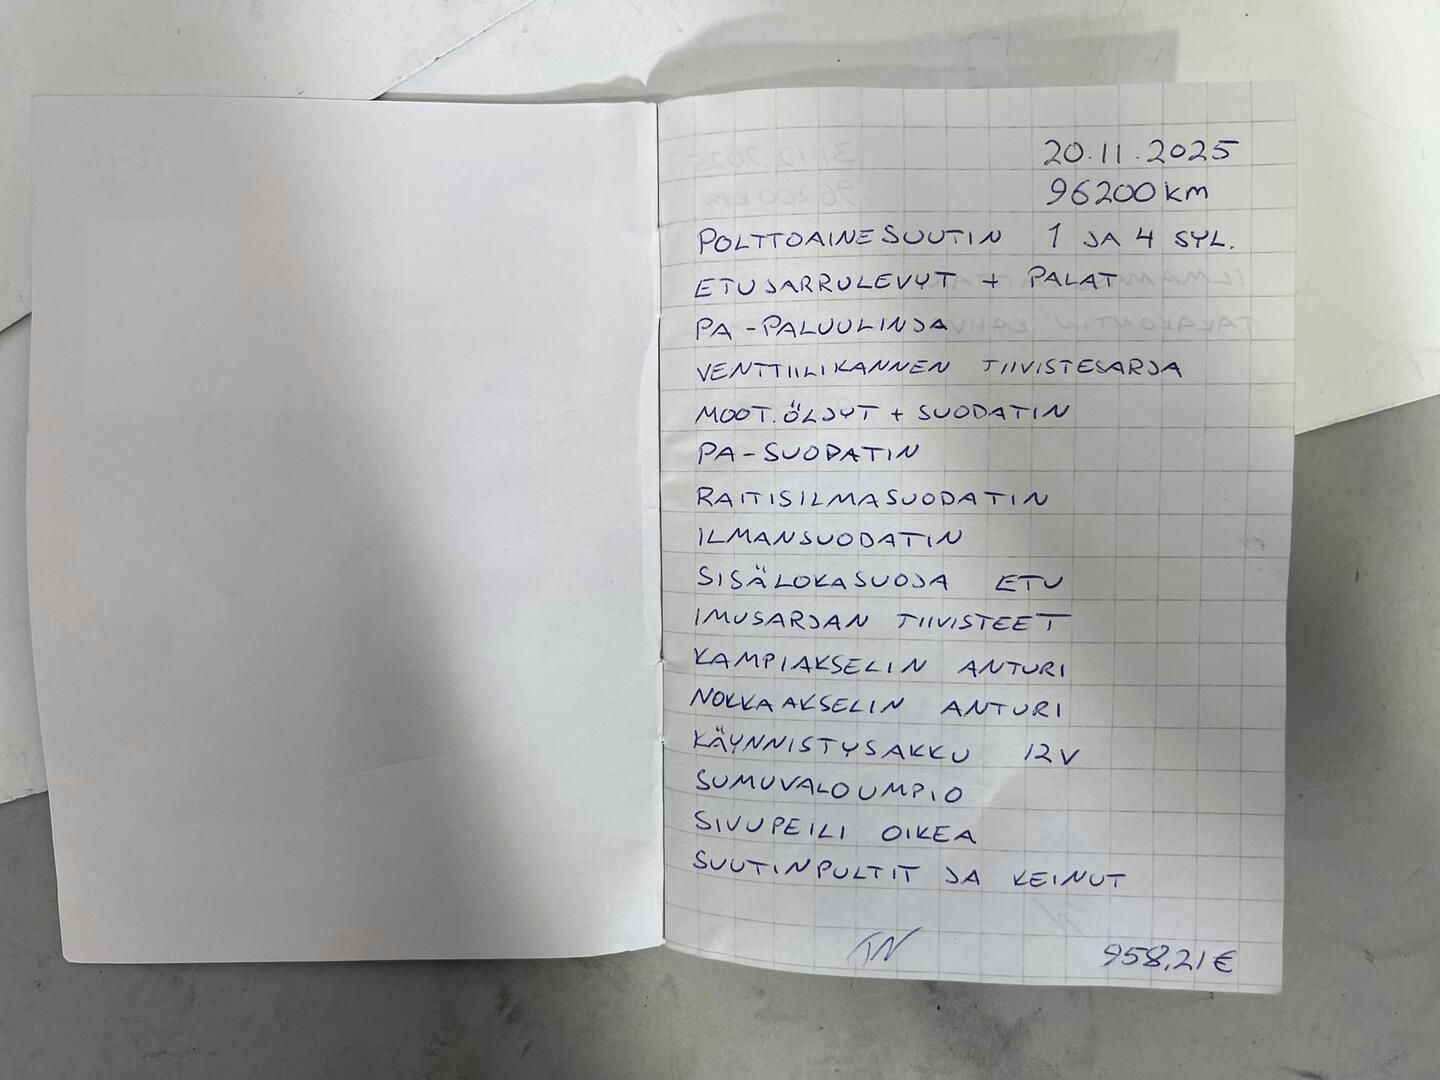 20.11.2025
96200km
POLTTOAINESUUTIN 1 JA 4 SYL.
ETUJARRULEVYT + PALAT
PA-PALUULINJA
VENTTIILIKANNEN TIIVISTESARJA
MOOT.ÖLJYT + SUODATIN
PA-SUODATIN
RAITISILMASUODATIN
ILMANSUODATIN
SISÄLOKASUOJA ETU
IMUSARJAN TIIVISTEET
KAMPIAKSELIN ANTURI
NOKKAAKSELIN ANTURI
KÄYNNISTYSAKKU 12V
SUMUVALOUMPIO
SIVUPEILI OIKEA
SUUTINPULTIT JA KEINUT
TN 958,21€